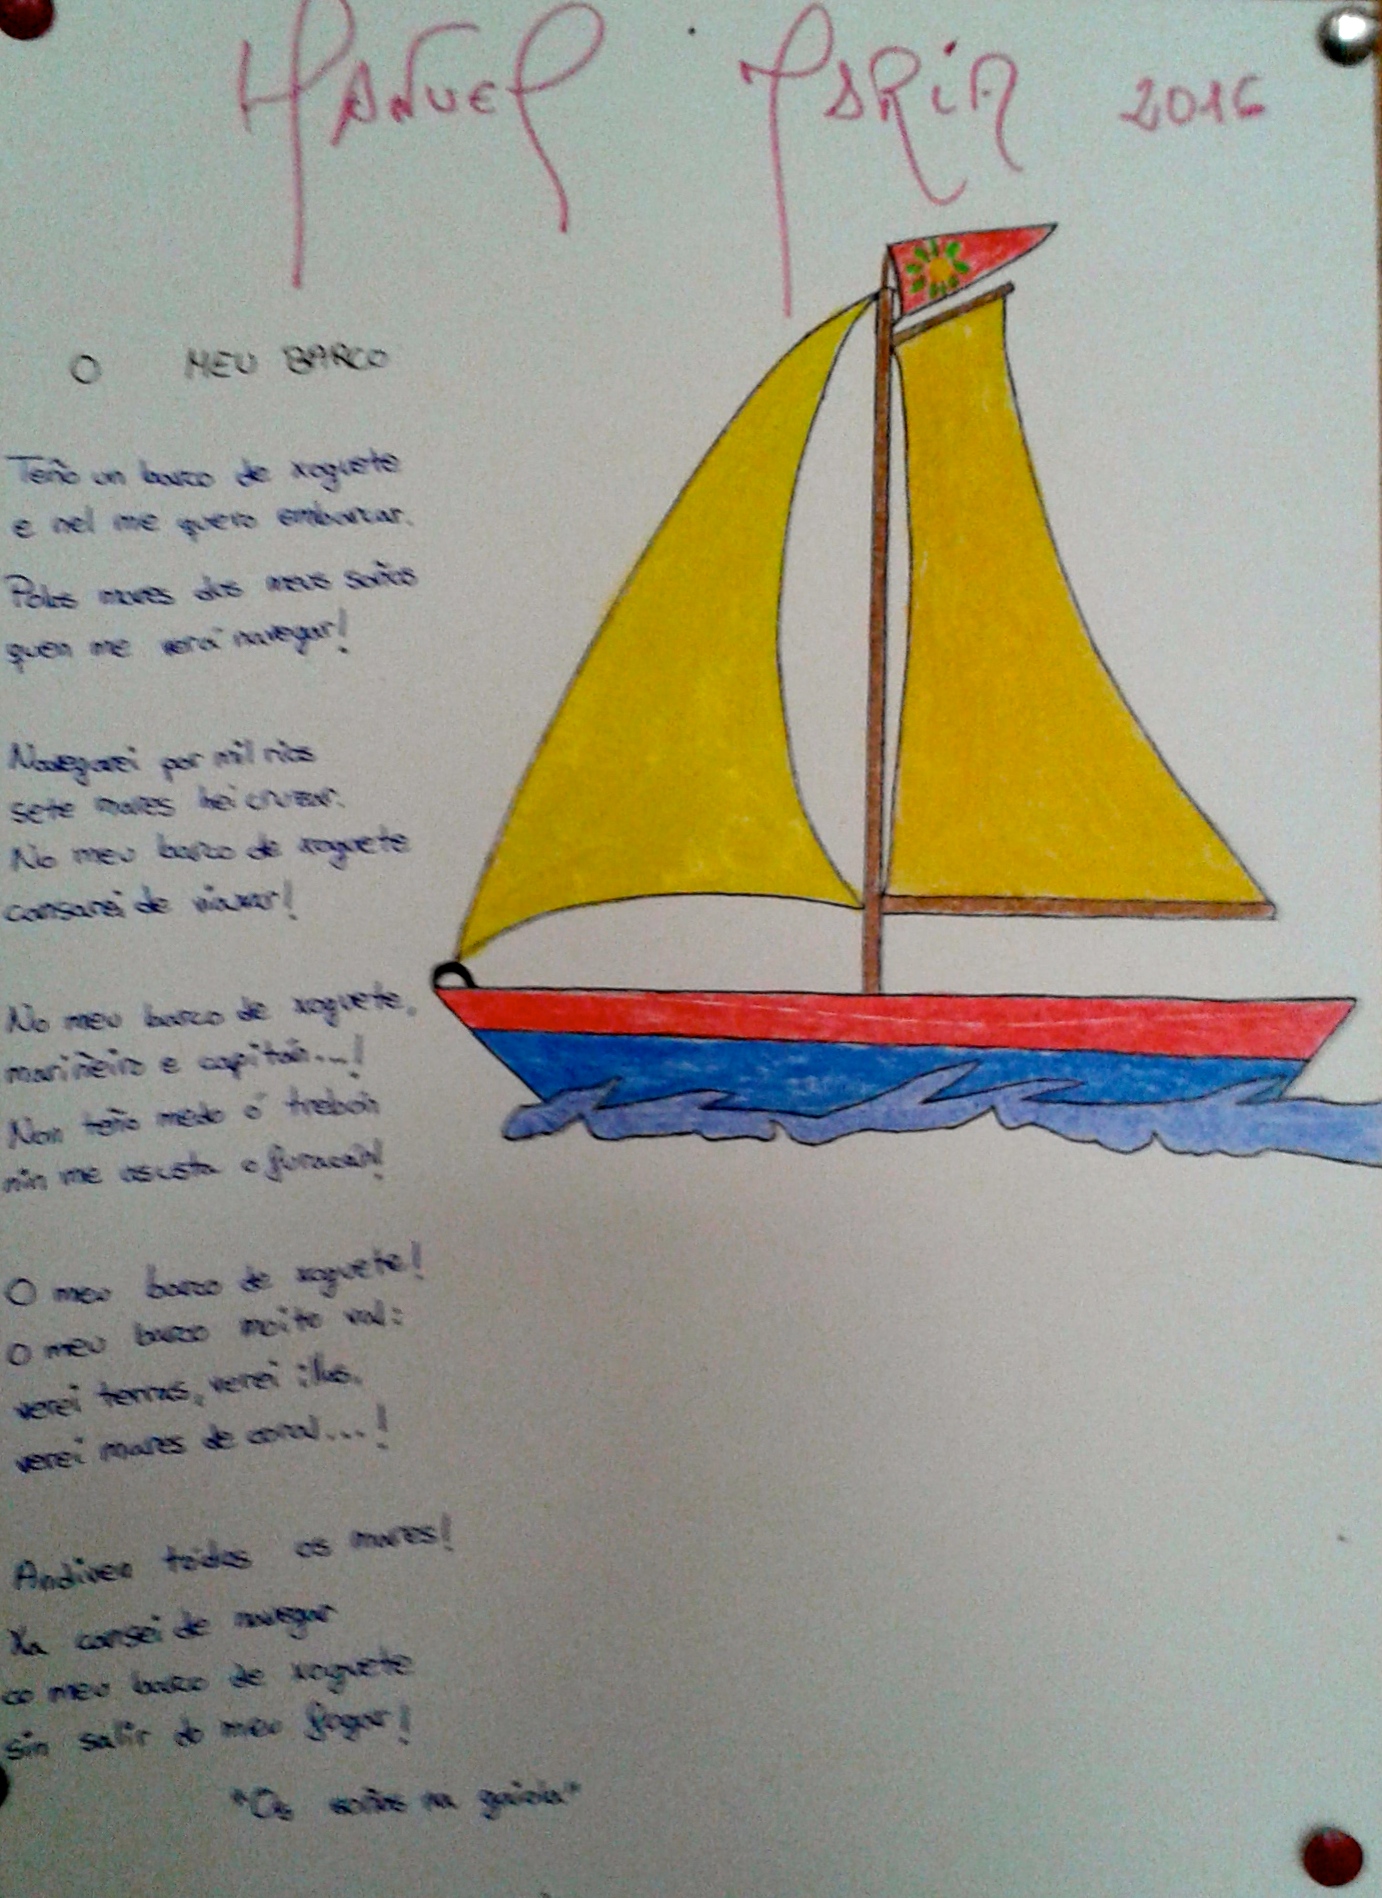 MANUEL MARIA 2016
O MEU BARCO
Teño un barco de xoguete
e nel me quero embarcar.
Polos mares dos meus soños
quen me verá navegar!
Navegarei por mil ríos
sete mares hei cruzar.
No meu barco de xoguete
cansarei de viaxar!
No meu barco de xoguete,
mariñeiro e capitán...!
Non teño medo ó trebón
nin me asusta o furacán!
O meu barco de xoguete!
O meu barco moito val:
verei terras, verei illas,
verei mares de coral...!
Andiven tódos os mares!
Xa cansei de navegar
co meu barco de xoguete
sin salir do meu fogar!
"Os soños na gaiola"